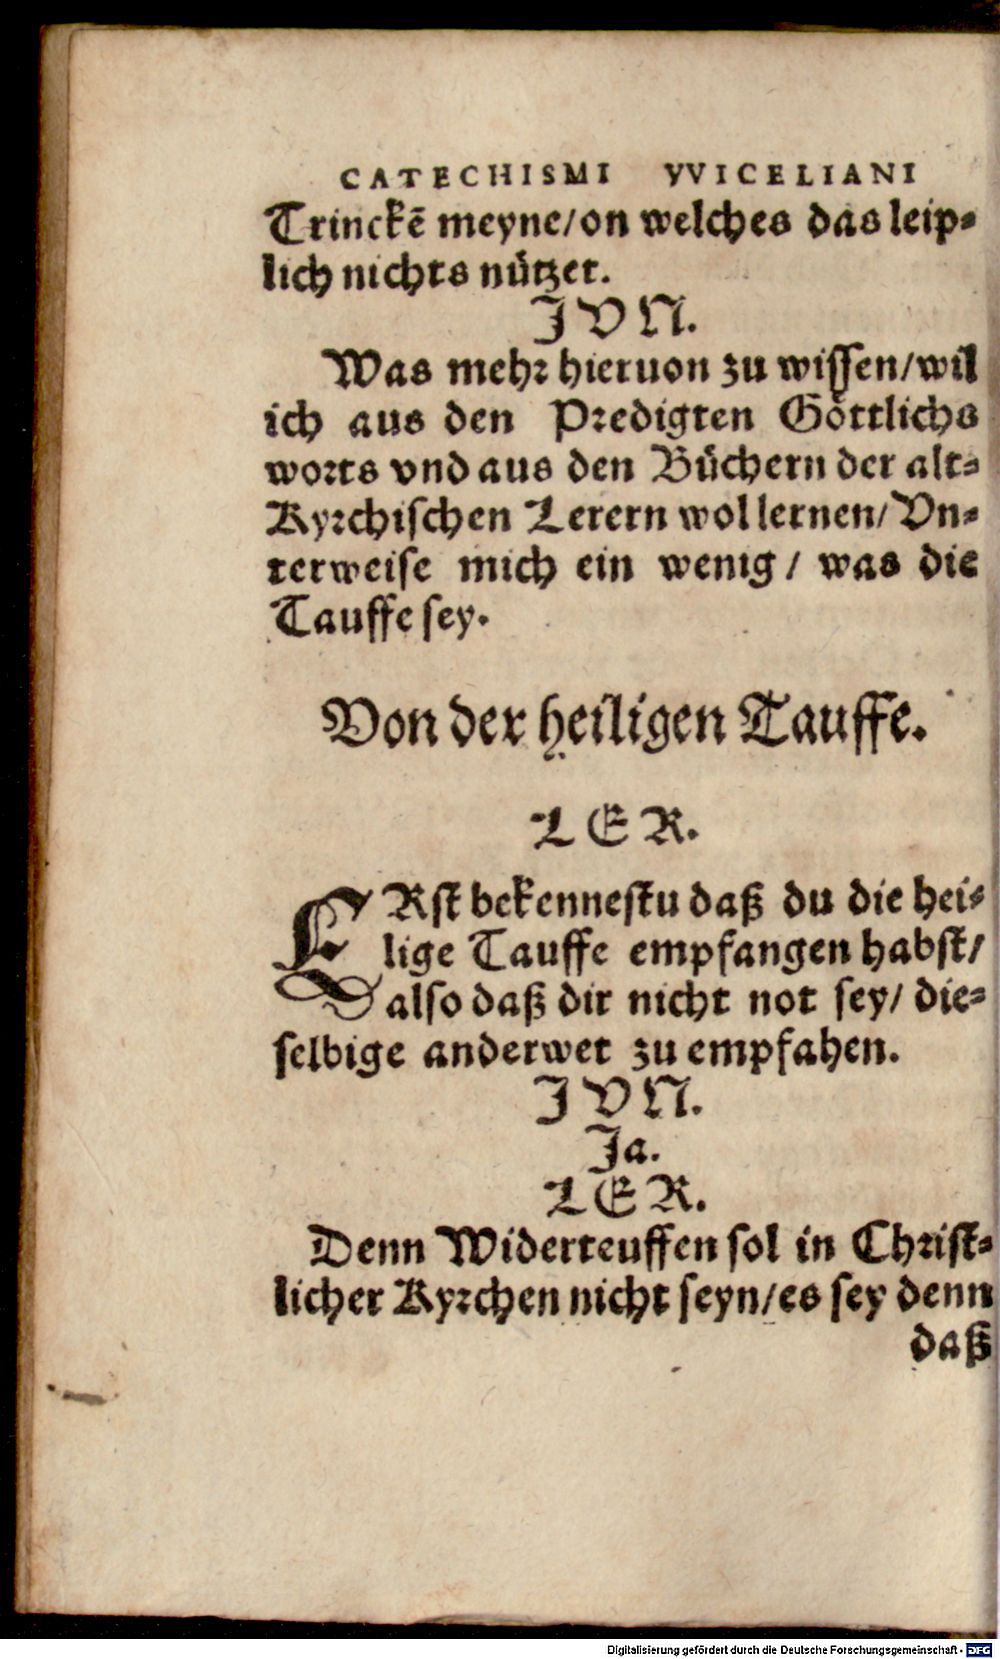 CATECHISMI VVICELIANI
Trinckē meyne/on welches das leip⸗
lich nichts nützet.
JVN.
Was mehr hieruon zu wissen/wil
ich aus den Predigten Göttlichs
worts vnd aus den Büchern der alt⸗
Kyrchischen Lerern wol lernen/Vn⸗
terweise mich ein wenig/ was die
Tauffe sey.
Von der heiligen Tauffe.
LER.
ERst bekennestu daß du die hei⸗
lige Tauffe empfangen habst/
also daß dir nicht not sey/ die⸗
selbige anderwet zu empfahen.
JVN.
Ja.
LER.
Denn Widerteuffen sol in Christ⸗
licher Kyrchen nicht seyn/es sey denn
daß
Digitalisierung gefördert durch die Deutsche Forschungsgemeinschaft - DFG